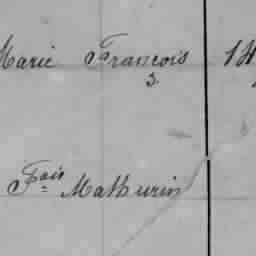 Marie François 14
3
Fois Mathurin